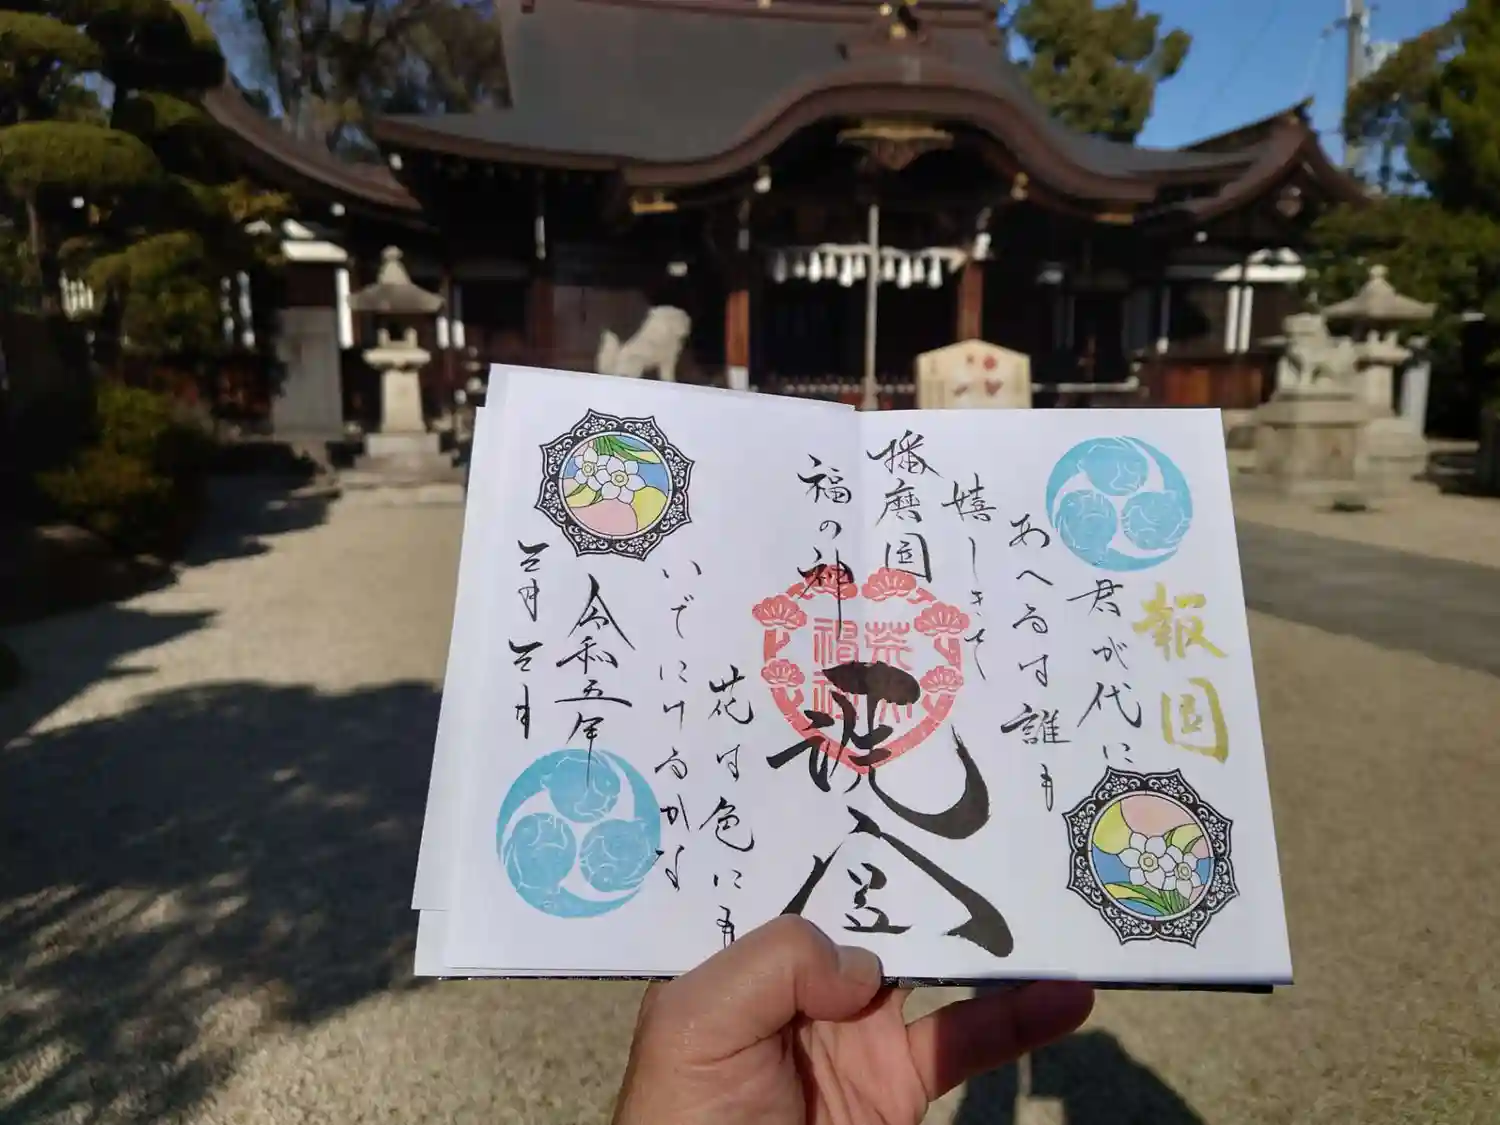 報国
君が代に
あへるは誰も
嬉しきを
播磨国
福の神
花は色にも
いでにけるかな
令和五年